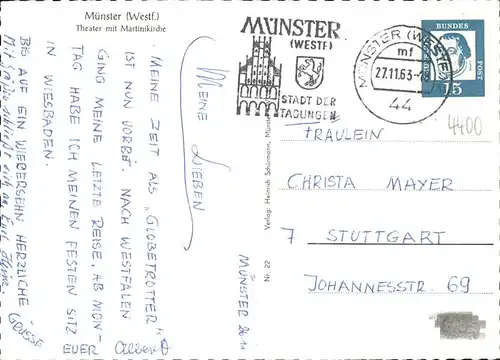 Münster (Westf.)
Theater mit Martinikirche
MÜNSTER
(WESTF)
STADT DER
TAGUNGEN
MÜNSTER (WESTF)
mf
27.11.63
44
DEUTSCHE
BUNDES
POST
15
4400
MÜNSTER 26.11
MEINE LIEBEN
MEINE ZEIT ALS „GLOBETROTTER"
IST NUN VORBEI. NACH WESTFALEN
GING MEINE LETZTE REISE. AB MON-
TAG HABE ICH MEINEN FESTEN SITZ
IN WIESBADEN.
BIS AUF EIN WIEDERSEHN HERZLICHE
GRÜSSE
EUER Albert
FRÄULEIN
CHRISTA MAYER
7 STUTTGART
JOHANNESSTR. 69
Verlag: Heinrich Schürmann, Münster
Nr. 22